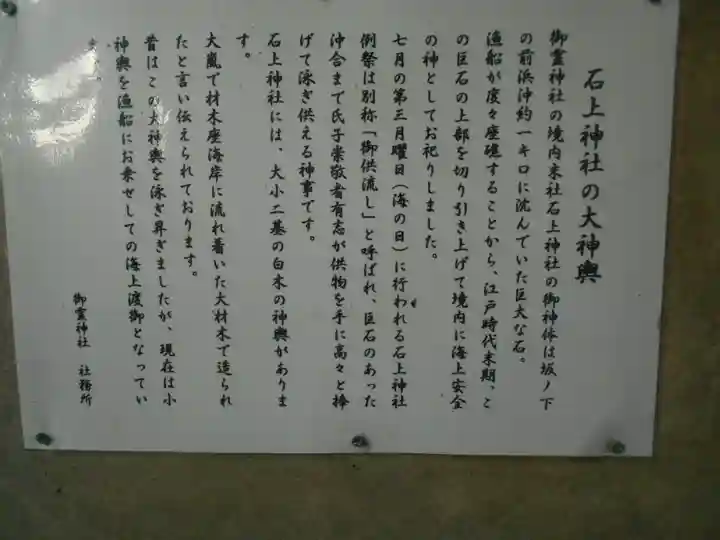 石上神社の大神輿
御霊神社の境内末社石上神社の御神体は坂ノ下
の前浜沖約一キロに沈んでいた巨大な石。
漁船が度々座礁することから、江戸時代末期、こ
の巨石の上部を切り引き上げて境内に海上安全
の神としてお祀りしました。
七月の第三月曜日(海の日)に行われる石上神社
例祭は別称「御供流し」と呼ばれ、巨石のあった
沖合まで氏子崇敬者有志が供物を手に高々と捧
げて泳ぎ供える神事です。
石上神社には、大小二基の白木の神輿がありま
す。
大嵐で材木座海岸に流れ着いた大材木で造られ
たと言い伝えられております。
昔はこの大神輿を泳ぎ舁ぎましたが、現在は小
神輿を漁船にお乗せしての海上渡御となってい
ます。
御霊神社 社務所